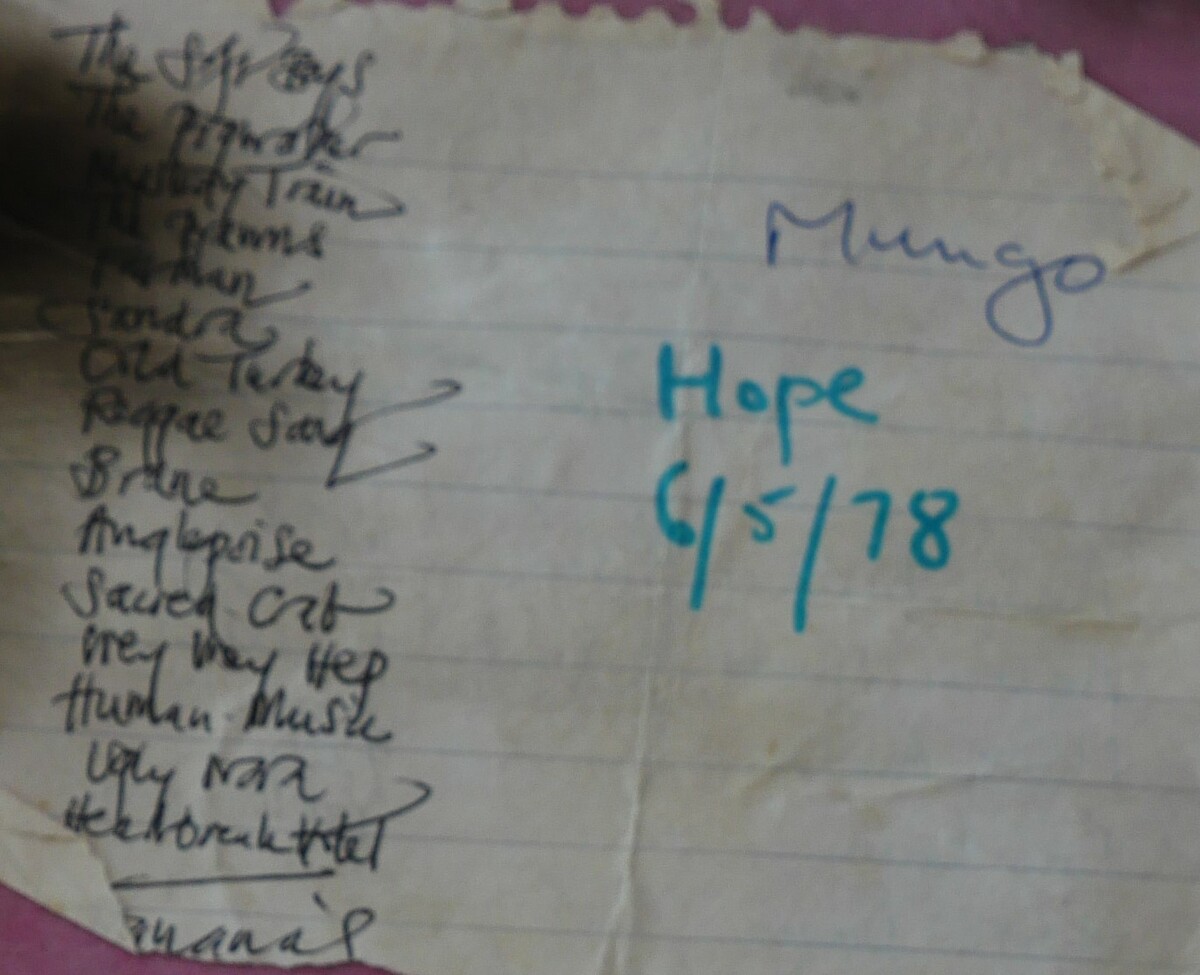 The Soft Boys
The Pigworker
Mystery Train
The Pigworker
Sandra
Cold Turkey
Reggae Song
Brane
Anglepoise
Sacred Crab
Wey Wey Hep
Human Music
Ugly Nora
Heartbreak Hotel
Mungo
Hope
6/5/78